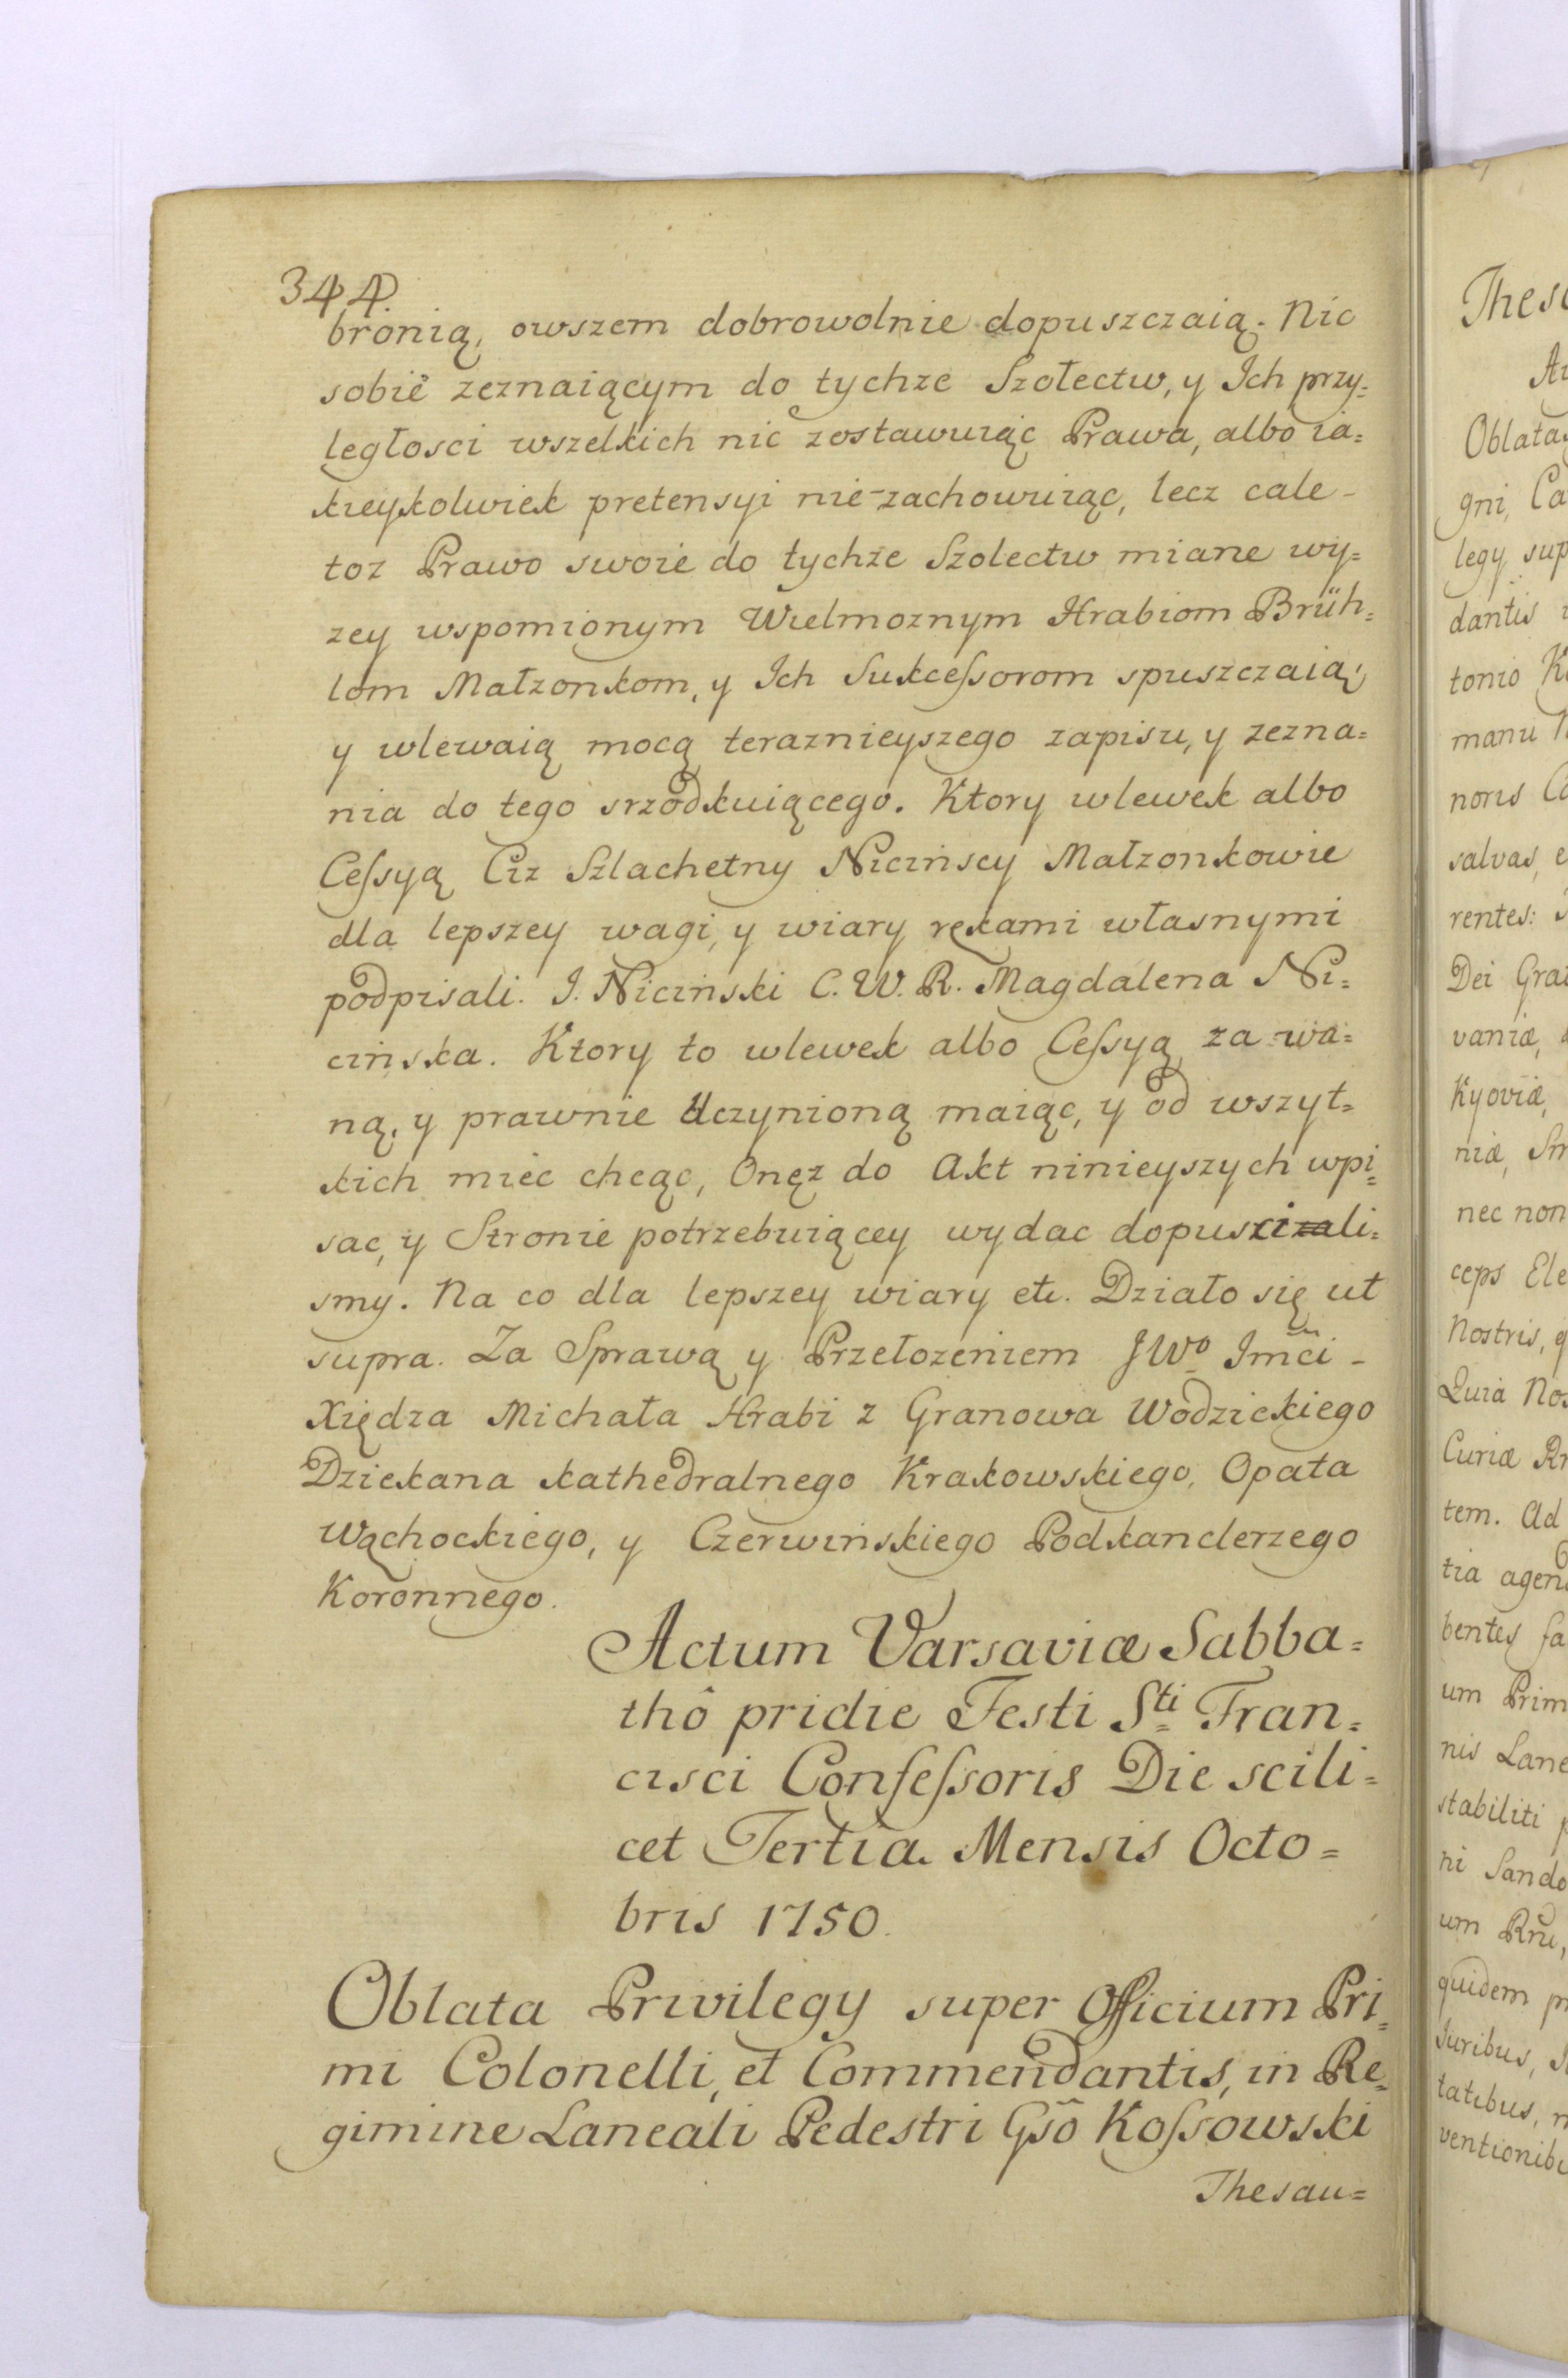 344
bronią, owszem dobrowolnie dopuszczaią. Nic
sobie zeznaiącym do tychze Szołectw, y Ich przy=
ległosci wszelkich nic zostawuiąc Prawa, albo ia=
kieykolwiek pretensyi nie-zachowuiąc, lecz cale-
toz Prawo swoie do tychże Szolectw miane wy=
zey wspomionym Wielmoznym Hrabiom Brüh=
lom Małzonkom, y Ich Sukceſsorom spuszczaią,
y wlewaią mocą teraznieyszego zapisu, y zezna=
nia do tego srzodkuiącego. Ktory wlewek albo
Ceſsyą Ciz Szlachetny Nicińscy Małzonkowie
dla lepszey wagi, y wiary rękami własnymi
podpisali. J. Niciński C. W. R. Magdalena Ni=
cińska. Ktory to wlewek albo Ceſsyą za wa=
ną, y prawnie Uczynioną maiąc, y od wszyt=
kich miec chcąc, Onęz do Akt ninieyszych wpi=
sac, y Stronie potrzebuiącey wydac dopuscili=
smy. Na co dla lepszey wiary etc. Działo się ut
supra. Za Sprawą y Przełozeniem JWo Imći-
Xiędza Michała Hrabi z Granowa Wodzickiego
Dziekana kathedralnego Krakowskiego, Opata
Wąchockiego, y Czerwińskiego Podkanclerzego
Koronnego.
Actum Varsaviæ Sabba=
thô pridie Festi Sti Fran=
cisci Confeſsoris Die scili=
cet Tertia Mensis Octo=
bris 1750.
Oblata Privilegy super Officium Pri=
mi Colonelli, et Commendantis, in Re=
gimine Laneali Pedestri Gsõ Koſsowski
Thesau=
Oblata
gni, Ca
legy sup
dantis
tonio
manu
noris
salvas, e
rentes:
Dei Gra
vaniæ,
Kyoviæ,
niæ, Sm
nec non
ceps Ele
Nostris,
Quia Nos
Curiæ
tem. Ad
tia agen
bentes fa
um Prim
nis Lane
stabiliti
ni Sando
um
quidem
Juribus,
tatibus,
ventionibu